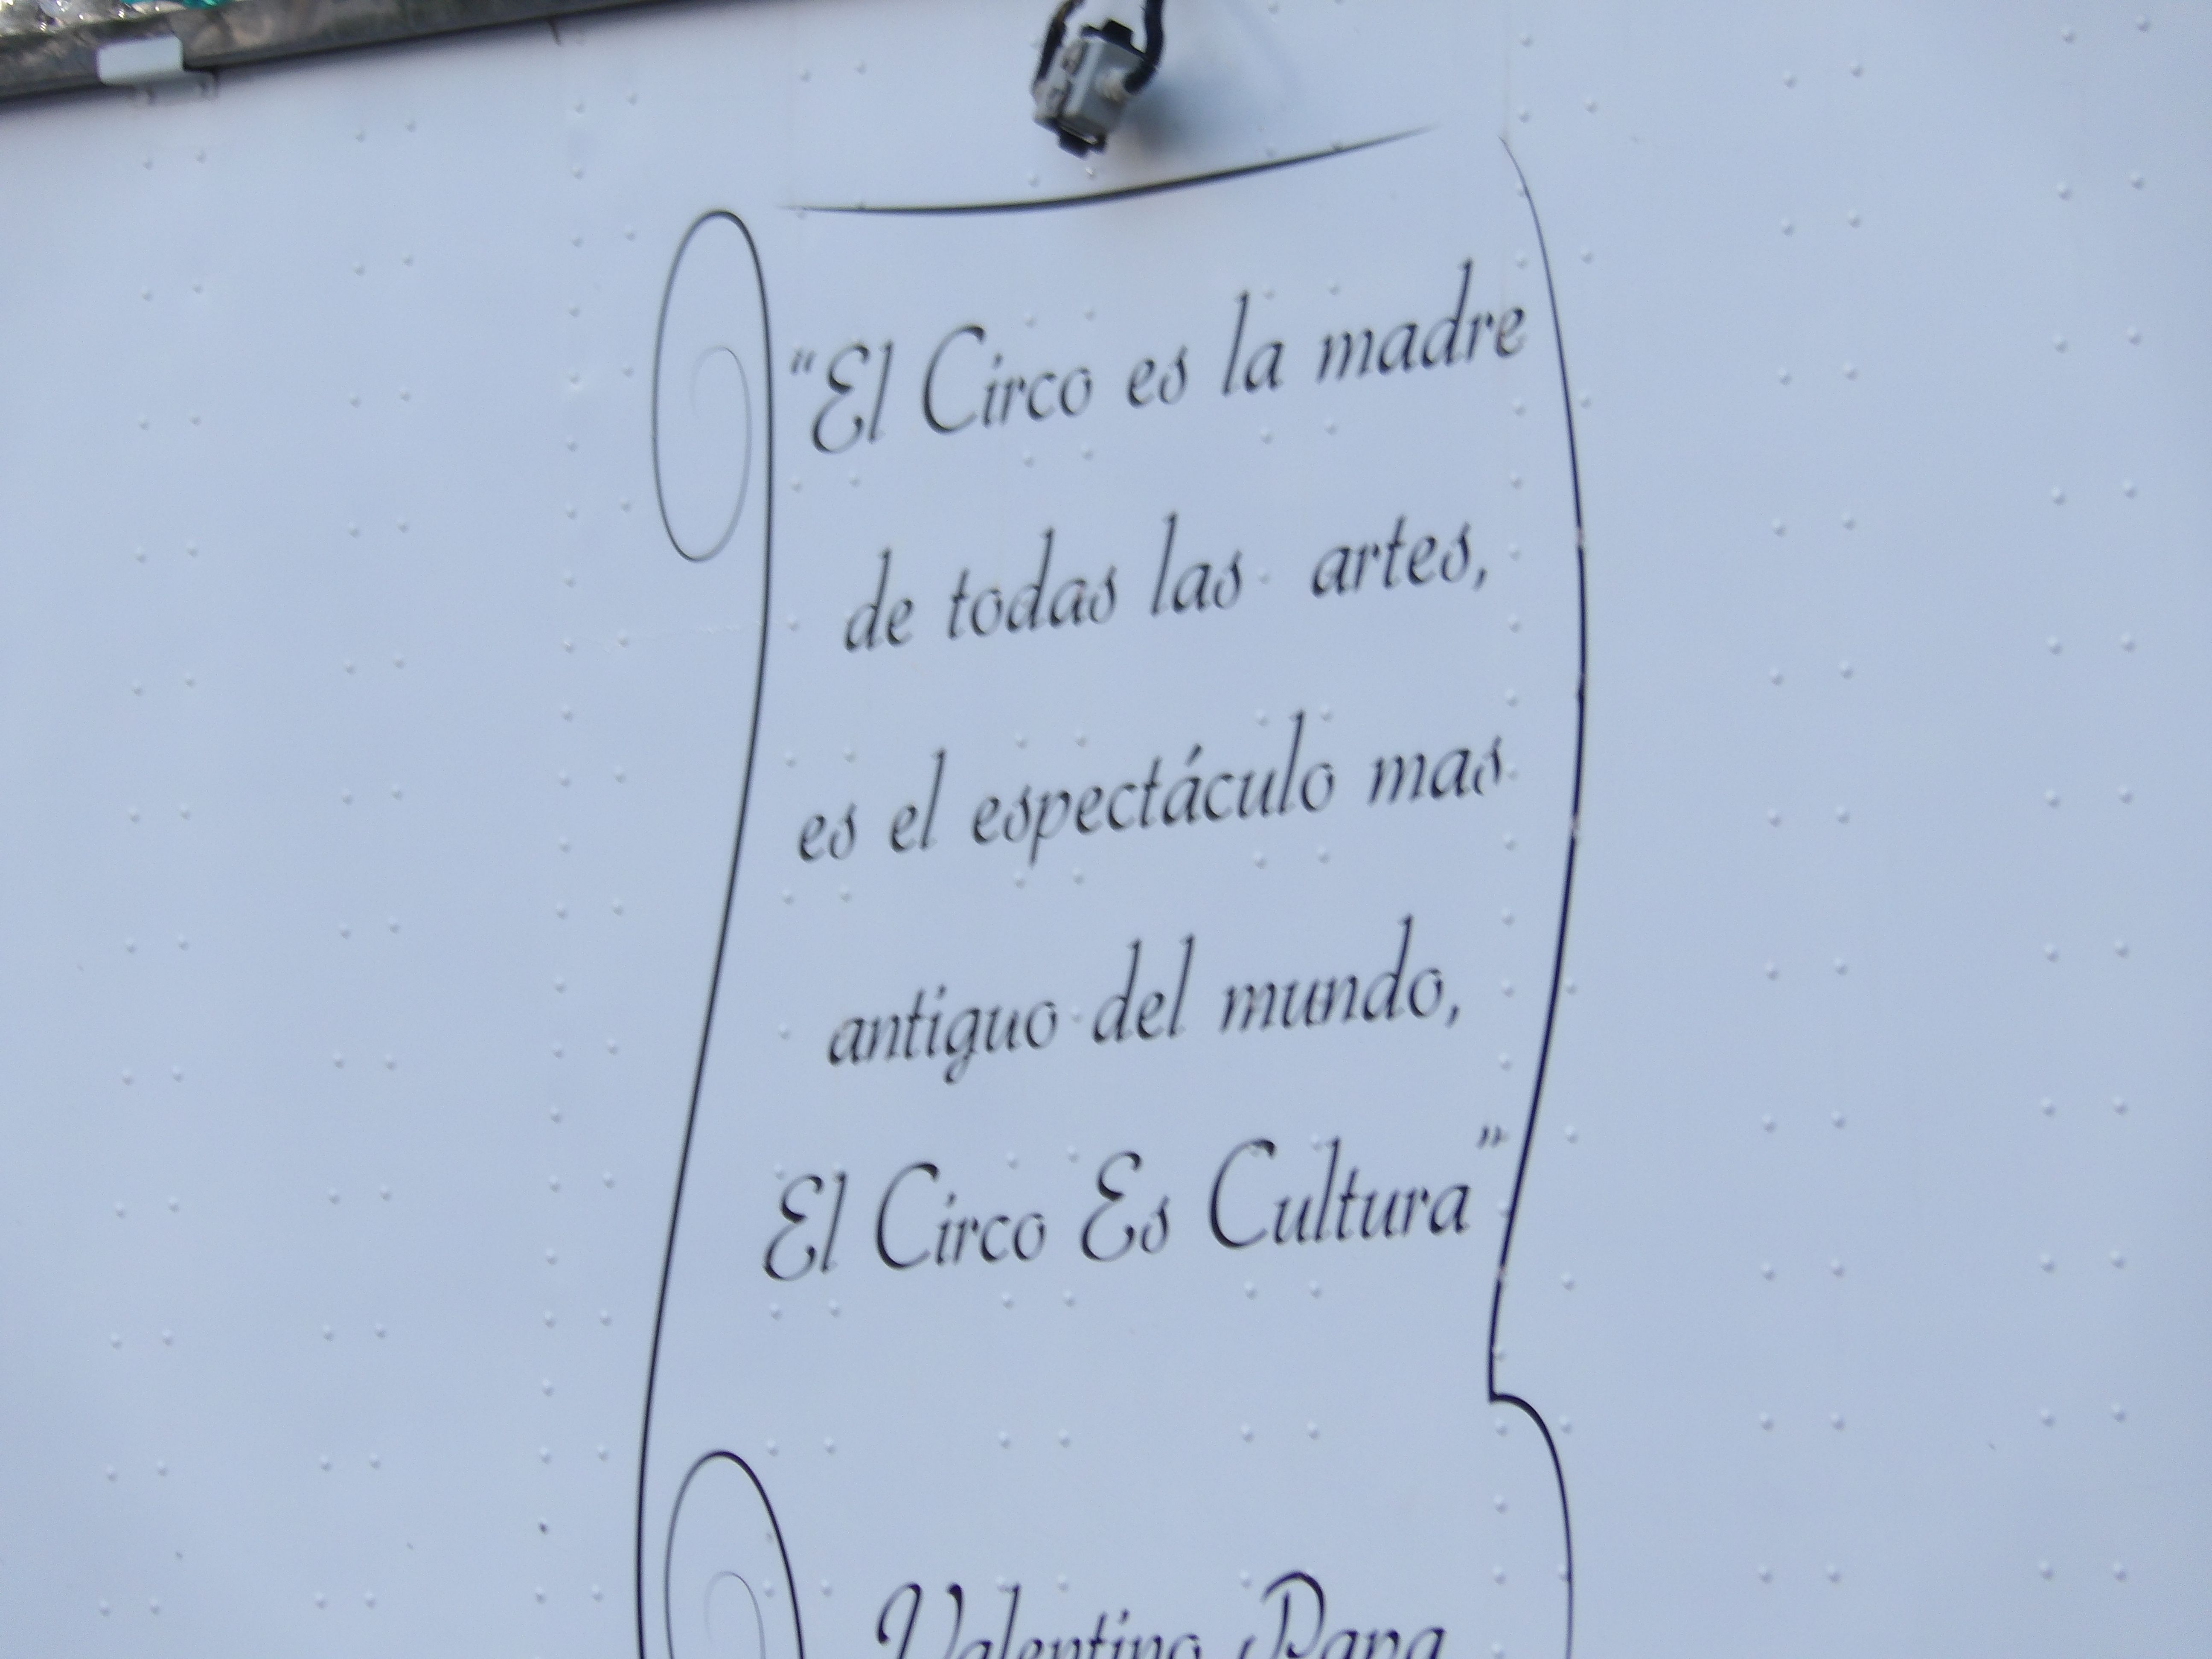 “El Circo es la madre
de todas las artes,
es el espectáculo mas
antiguo del mundo,
El Circo Es Cultura”
Valentino